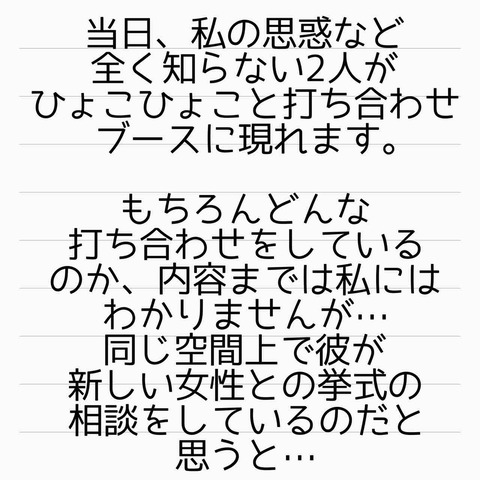 当日、私の思惑など
全く知らない2人が
ひょこひょこと打ち合わせ
ブースに現れます。
もちろんどんな
打ち合わせをしている
のか、内容までは私には
わかりませんが…
同じ空間上で彼が
新しい女性との挙式の
相談をしているのだと
思うと…